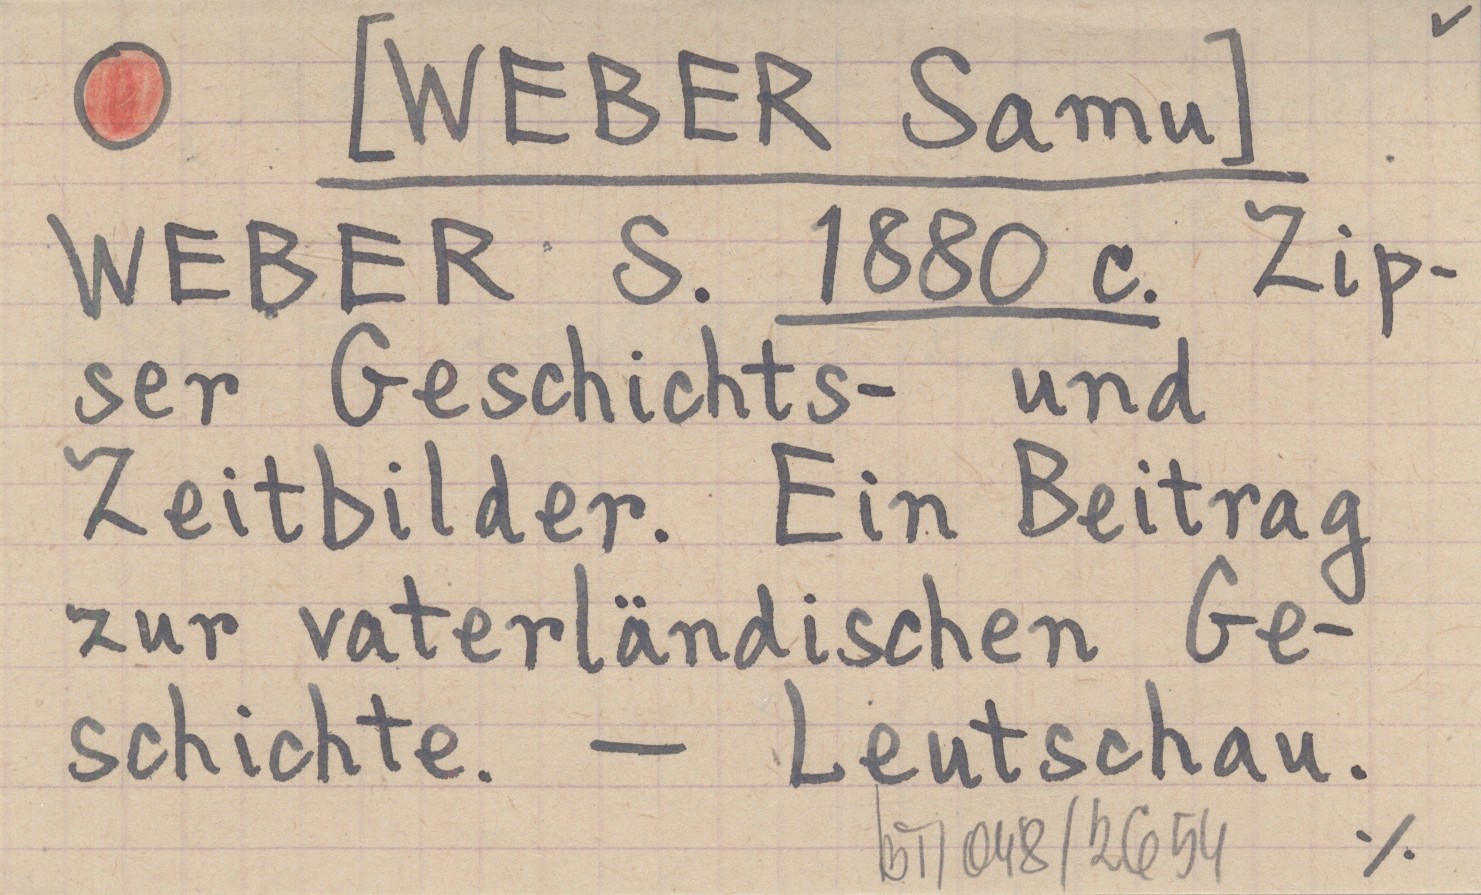 [WEBER Samu]
WEBER S. 1880 c. Zip-
ser Geschichts- und
Zeitbilder. Ein Beitrag
zur vaterländischen Ge-
schichte. — Leutschau.
048/2654 ·/.